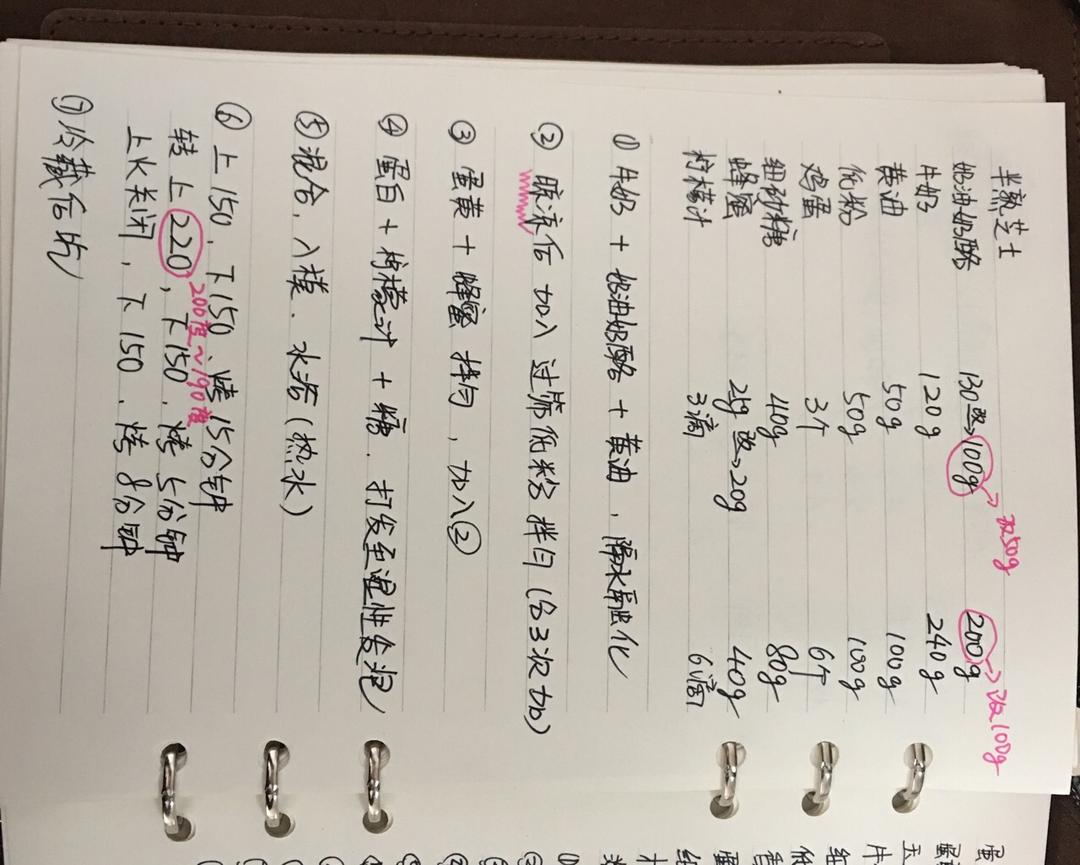 半熟芝士
奶油奶酪 130改→100g→改50g 200g→改100g
牛奶 120g 240g
黄油 50g 100g
低粉 50g 100g
鸡蛋 3个 6个
细砂糖 40g 80g
蜂蜜 25g 改→20g 40g
柠檬汁 3滴 6滴
① 牛奶 + 奶油奶酪 + 黄油，隔水融化
② 晾凉后 加入 过筛低粉 拌匀 (分3次加)
③ 蛋黄 + 蜂蜜 拌匀，加入②
④ 蛋白 + 柠檬汁 + 糖．打发至湿性发泡
⑤ 混合，入模．水浴(热水)
⑥ 上150．下150．烤15分钟
转上220，下150．烤5分钟
200度~190度
上火关闭，下150．烤8分钟
⑦ 冷藏后吃